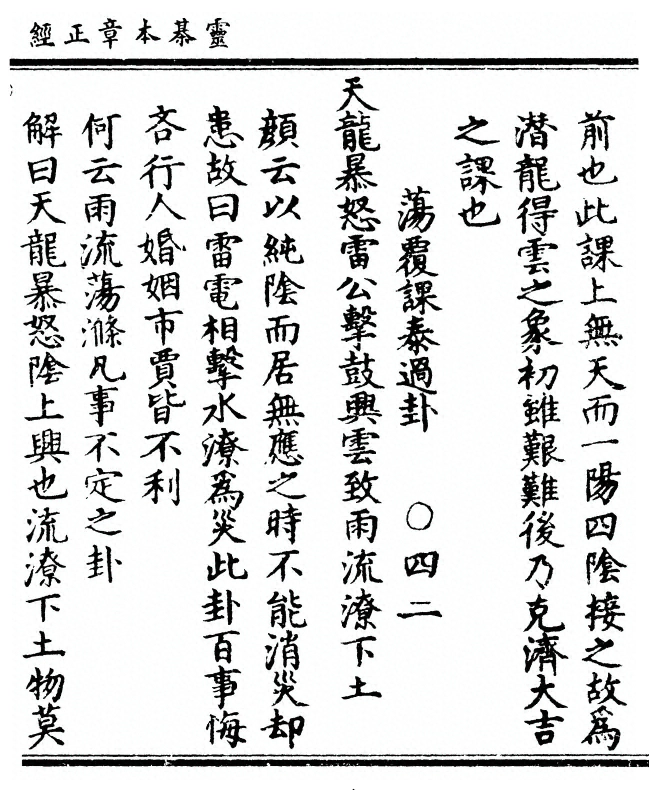 靈棊本章正經
前也此課上無天而一陽四陰接之故爲
潛龍得雲之象初雖艱難後乃克濟大吉
之課也
蕩覆課泰過卦 〇四二
天龍暴怒雷公擊鼓興雲致雨流潦下土
顔云以純陰而居無應之時不能消災却
患故曰雷電相擊水潦爲災此卦百事悔
吝行人婚姻市賈皆不利
何云雨流蕩滌凡事不定之卦
解曰天龍暴怒陰上興也流潦下土物莫